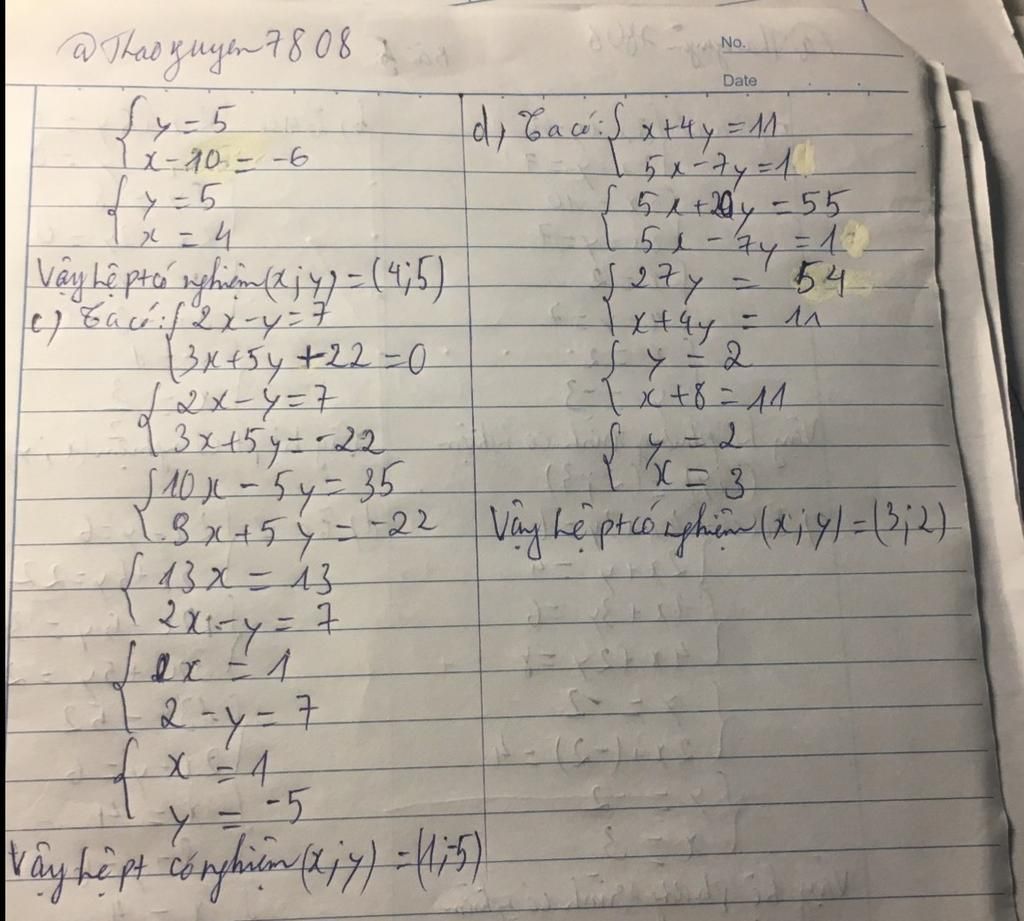 @Thaonguyen7808
No.
Date
{ y = 5
x - 10 = -6
{ y = 5
x = 4
Vậy hệ pt có nghiệm (x;y) = (4;5)
c) Ta có: { 2x - y = 7
3x + 5y + 22 = 0
{ 2x - y = 7
3x + 5y = -22
{ 10x - 5y = 35
3x + 5y = -22
{ 13x = 13
2x - y = 7
{ x = 1
2 - y = 7
{ x = 1
y = -5
Vậy hệ pt có nghiệm (x;y) = (1;-5)
d) Ta có: { x + 4y = 11
5x - 7y = 1
{ 5x + 20y = 55
5x - 7y = 1
{ 27y = 54
x + 4y = 11
{ y = 2
x + 8 = 11
{ y = 2
x = 3
Vậy hệ pt có nghiệm (x;y) = (3;2)